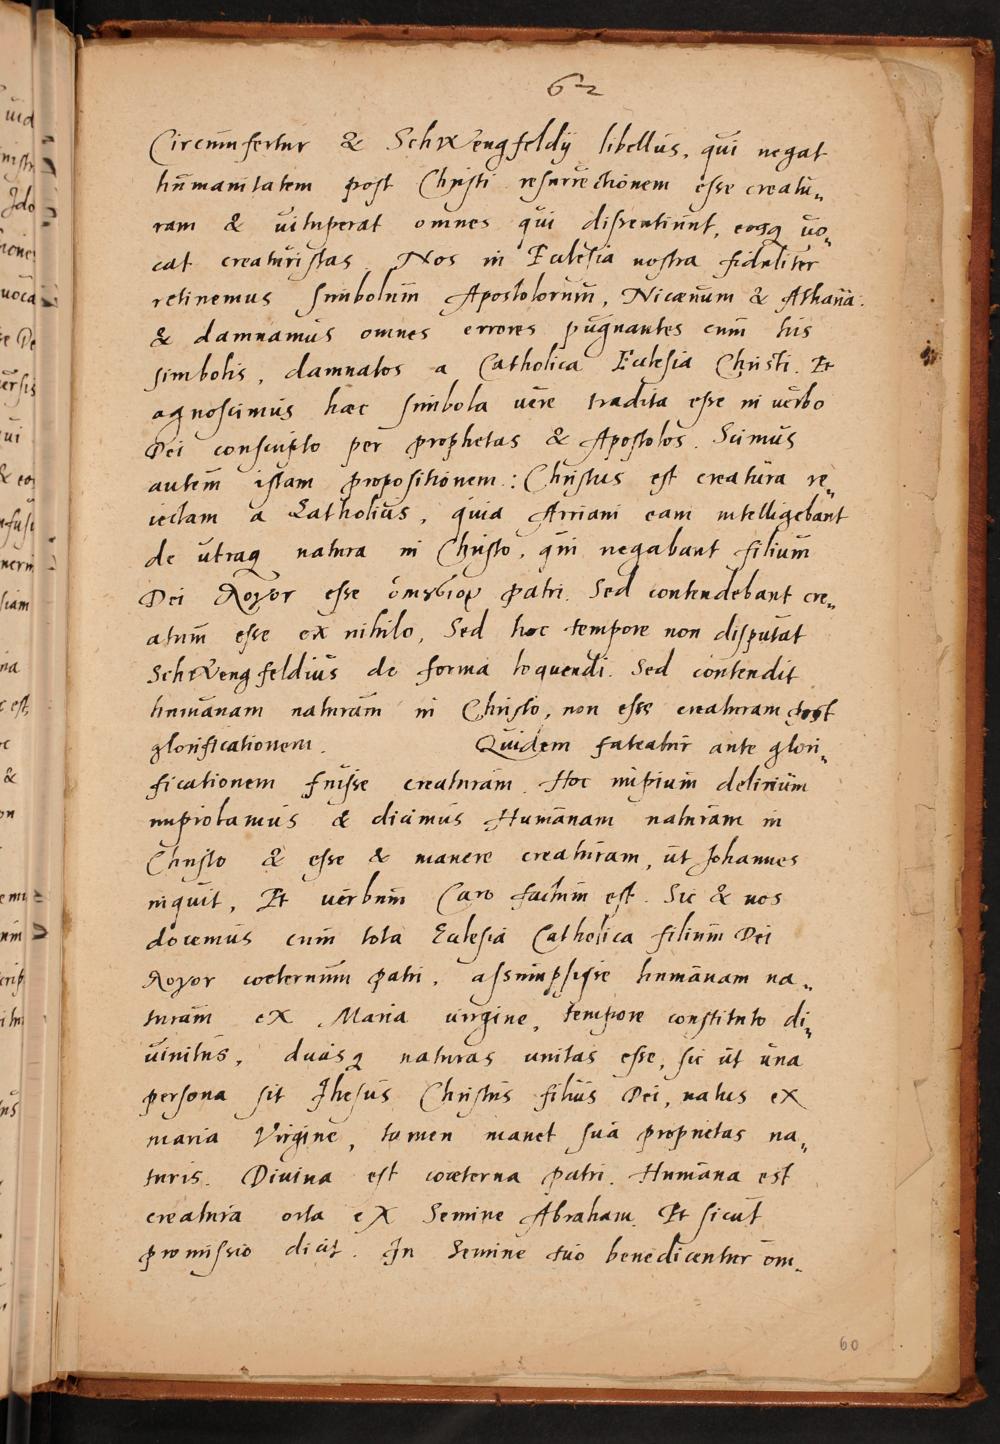 62
Circumfertur & SchWengfeldij libellus, qui negat
humanitatem post Christi resurrectionem esse creatu„
ram & uituperat omnes qui dissentiunt, eosq uo„
cat creaturistas. Nos in Eclesia nostra fideliter
retinemus simbolum Apostolorum, Nicænum & Athana:
& damnamus omnes errores pugnantes cum his
simbolis, damnatos a Catholica Eclesia Christi. Et
agnoscimus hæc simbola uere tradita esse in uerbo
Dei conscripto per prophetas & Apostolos. Scimus
autem istam propositionem: Christus est creatura re„
iectam a Catholicis, quia Arriani eam intelligebant
de utraq natura in Christo, qui negabant filium
Dei λογον esse patri. Sed contendebant cre„
atum esse ex nihilo, Sed hoc tempore non disputat
SchWengfeldius de forma loquendi. Sed contendit
humanam naturam in Christo, non esse creaturam post
glorificationem. Quidem fateatur ante glori„
ficationem fuisse creaturam. Hoc impium delirium
improbamus & dicimus Humanam naturam in
Christo & esse & manere creaturam, ut Johannes
inquit, Et uerbum Caro factum est. Sic & nos
docemus cum tota Eclesia Catholica filium Dei
λογον coeternum patri, assumpsisse humanam na„
turam ex Maria uirgine, tempore constituto di„
uinitus, duasq naturas unitas esse, sic ut una
persona sit Jhesus Christus filius Dei, natus ex
maria Virgine, tamen manet sua proprietas na„
turis. Diuina est coæterna patri. Humana est
creatura orta ex Semine Abraham. Et sicut
promissio dicit. In Semine tuo benedicentur om„
60